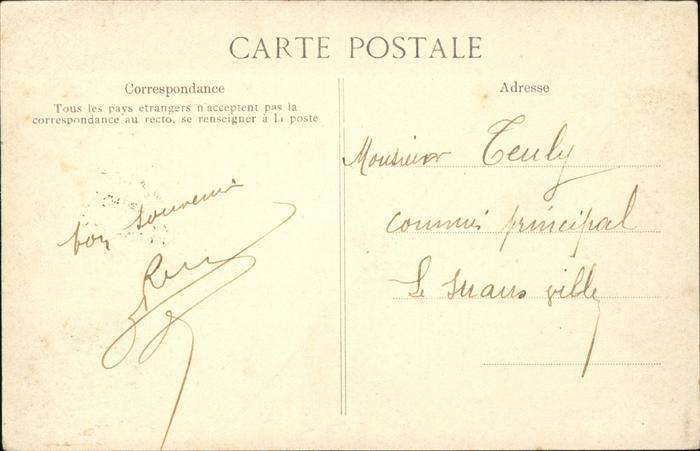 CARTE POSTALE
Correspondance
Tous les pays etrangers n'acceptent pas la
correspondance au recto, se renseigner à La poste
bon souvenir
Adresse
Monsieur Teuly
commis principal
Le Mans ville